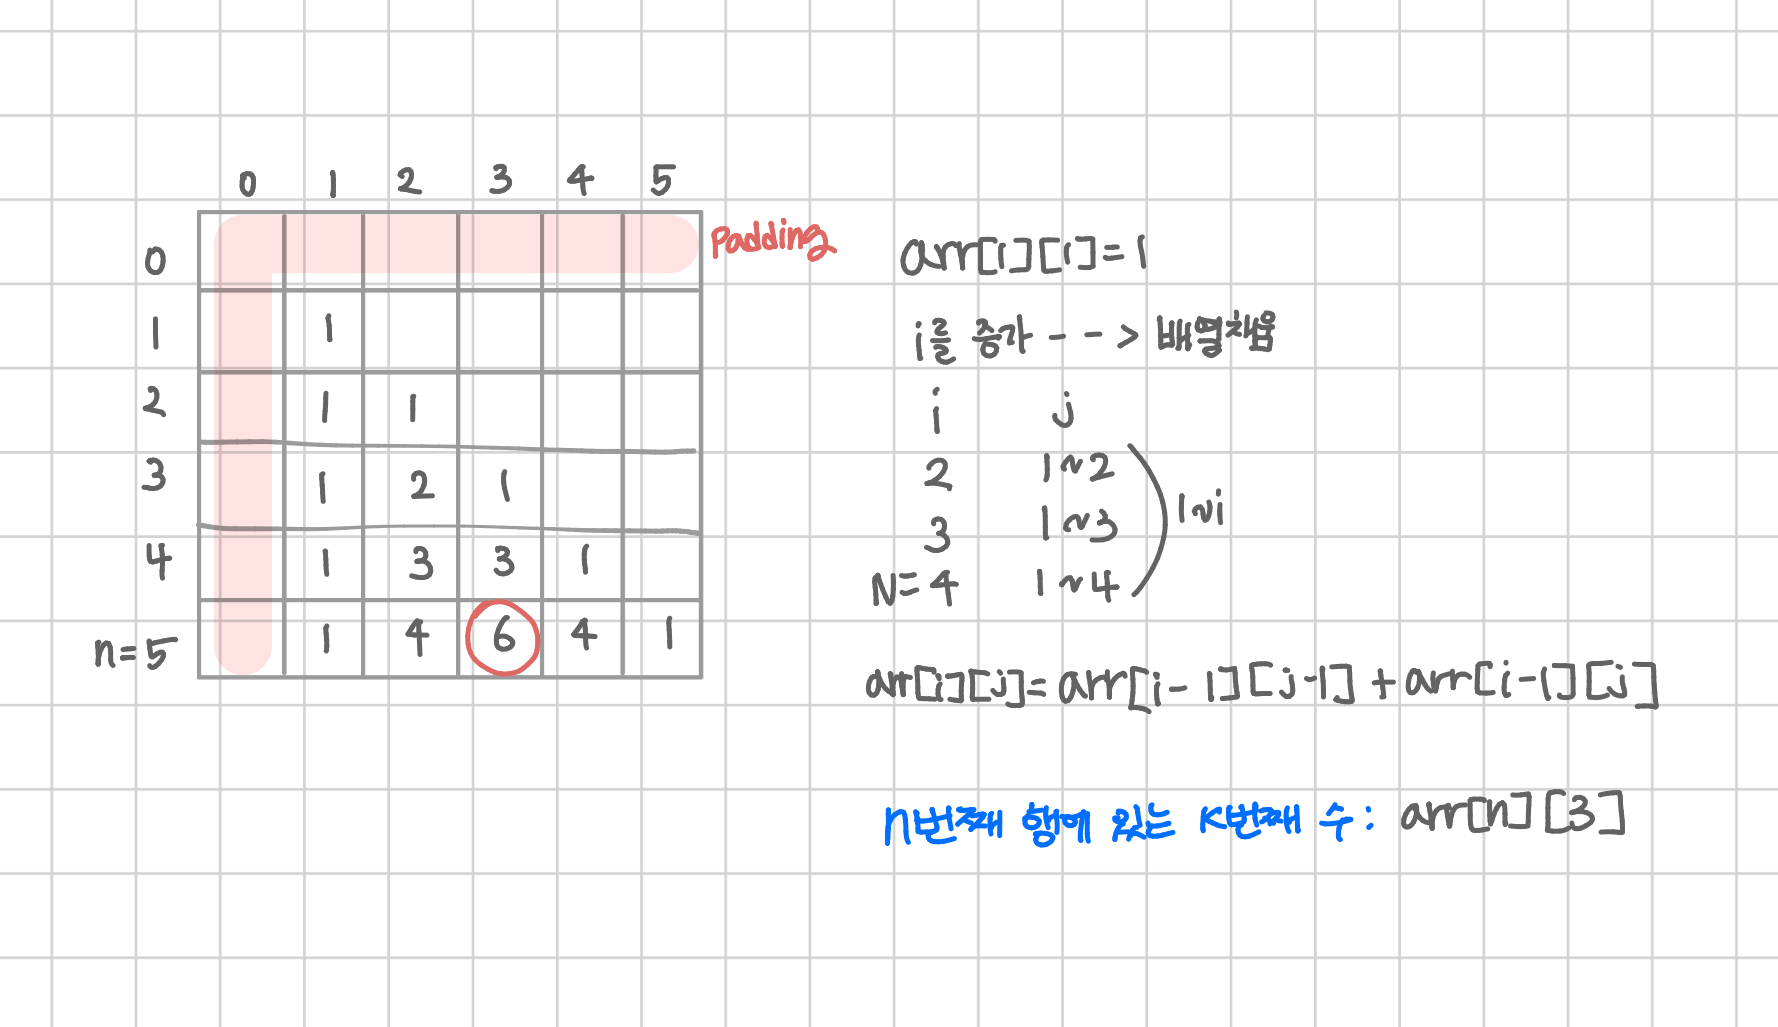 0 1 2 3 4 5
0 Padding
1 1
2 1 1
3 1 2 1
4 1 3 3 1
n=5 1 4 6 4 1
arr[1][1]=1
i를 증가 --> 배열채움
i j
2 1~2
3 1~3
N=4 1~4
1~i
arr[i][j]=arr[i-1][j-1]+arr[i-1][j]
n번째 행에 있는 K번째 수: arr[n][3]